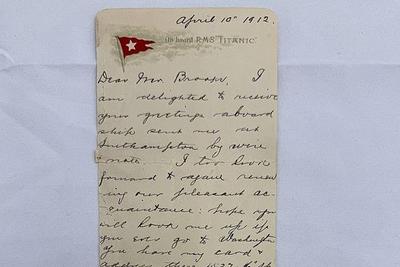 April 10th 1912.
On board R.M.S. "TITANIC."
Dear Mr. Brooks. I
am delighted to receive
your greetings aboard
ship sent me at
Southampton by wire
& note. I too look
forward to again renew
ing our pleasant ac-
quaintance: hope you
will look me up if
you ever go to Washington
You have my card &
address there 1527